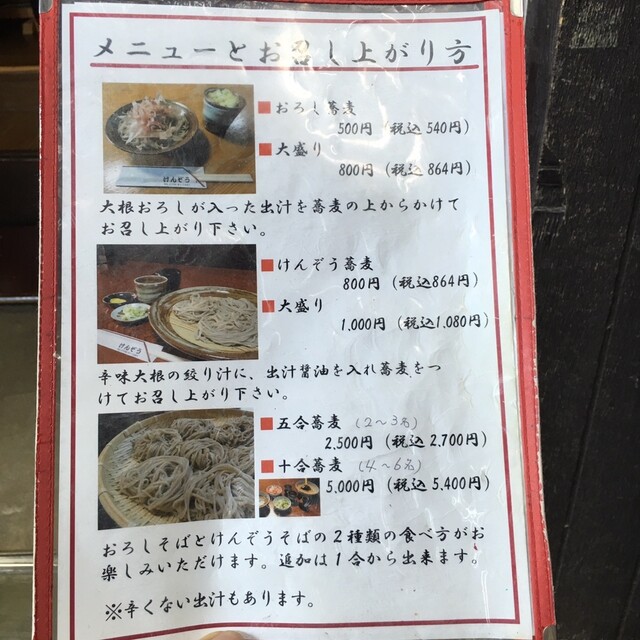 メニューとお召し上がり方
■おろし蕎麦
500円（税込 540円）
■大盛り
800円（税込 864円）
けんぞう
大根おろしが入った出汁を蕎麦の上からかけて
お召し上がり下さい。
■けんぞう蕎麦
800円（税込864円）
■大盛り
1,000円（税込1,080円）
けんぞう
辛味大根の絞り汁に、出汁醤油を入れ蕎麦をつ
けてお召し上がり下さい。
■五合蕎麦（2〜3名）
2,500円（税込 2,700円）
■十合蕎麦（4〜6名）
5,000円（税込 5,400円）
おろしそばとけんぞうそばの２種類の食べ方がお
楽しみいただけます。追加は１合から出来ます。
※辛くない出汁もあります。